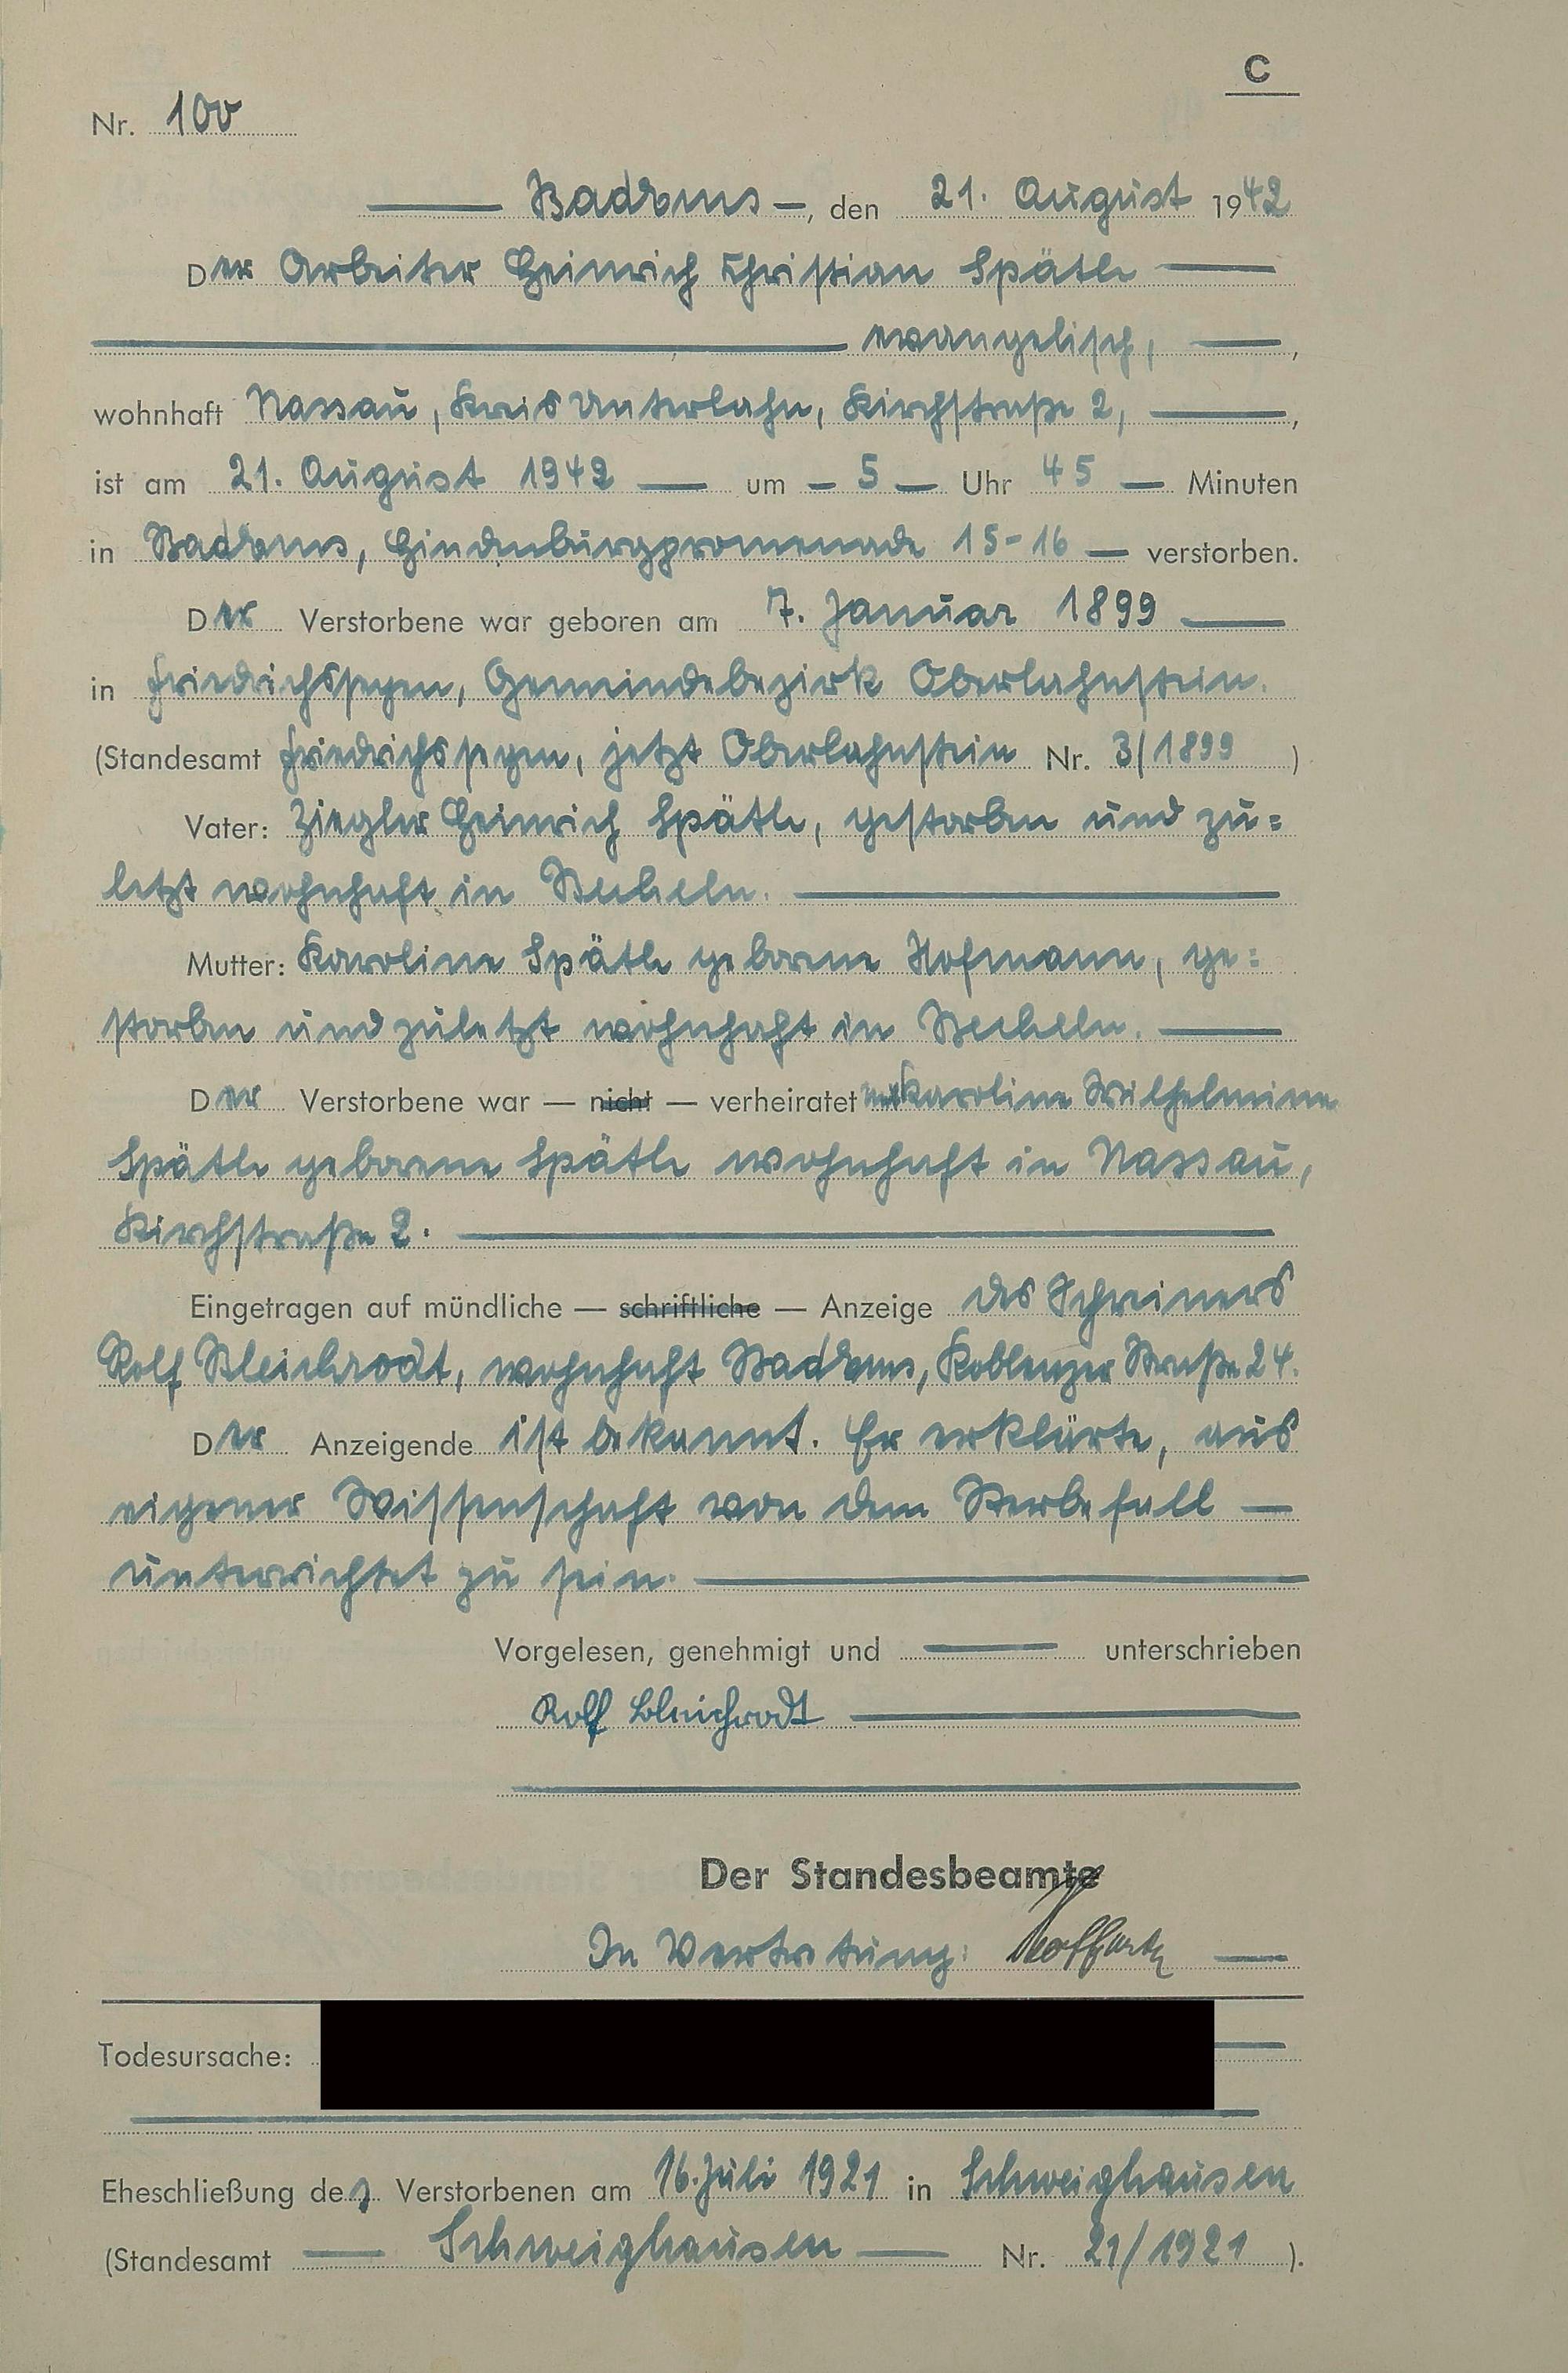 C
Nr. 100
Bad Ems, den 21. August 1942
Der Arbeiter Heinrich Christian Späth
evangelisch,
wohnhaft Nassau, Kreis Unterlahn, Kirchstraße 2,
ist am 21. August 1942 um 5 Uhr 45 Minuten
in Bad Ems, Hindenburgpromenade 15-16 verstorben.
Der Verstorbene war geboren am 7. Januar 1899
in Friedrichssegen, Gemeindebezirk Oberlahnstein.
(Standesamt Friedrichssegen, jetzt Oberlahnstein Nr. 3/1899)
Vater: Ziegler Heinrich Späth, gestorben und zu=
letzt wohnhaft in Becheln.
Mutter: Karoline Späth geborene Hofmann, ge=
storben und zuletzt wohnhaft in Becheln.
Der Verstorbene war — nicht — verheiratet mit Karoline Wilhelmine
Späth geborene Späth wohnhaft in Nassau,
Kirchstraße 2.
Eingetragen auf mündliche — schriftliche — Anzeige des Schreiners
Rolf Bleichrodt, wohnhaft Bad Ems, Koblenzer Straße 24.
Der Anzeigende ist bekannt. Er erklärte, aus
eigener Wissenschaft von dem Sterbefall
unterrichtet zu sein.
Vorgelesen, genehmigt und unterschrieben
Rolf Bleichrodt
Der Standesbeamte
In Vertretung:
Todesursache:
Eheschließung des Verstorbenen am 16. Juli 1921 in Schweighausen
(Standesamt Schweighausen Nr. 21/1921).